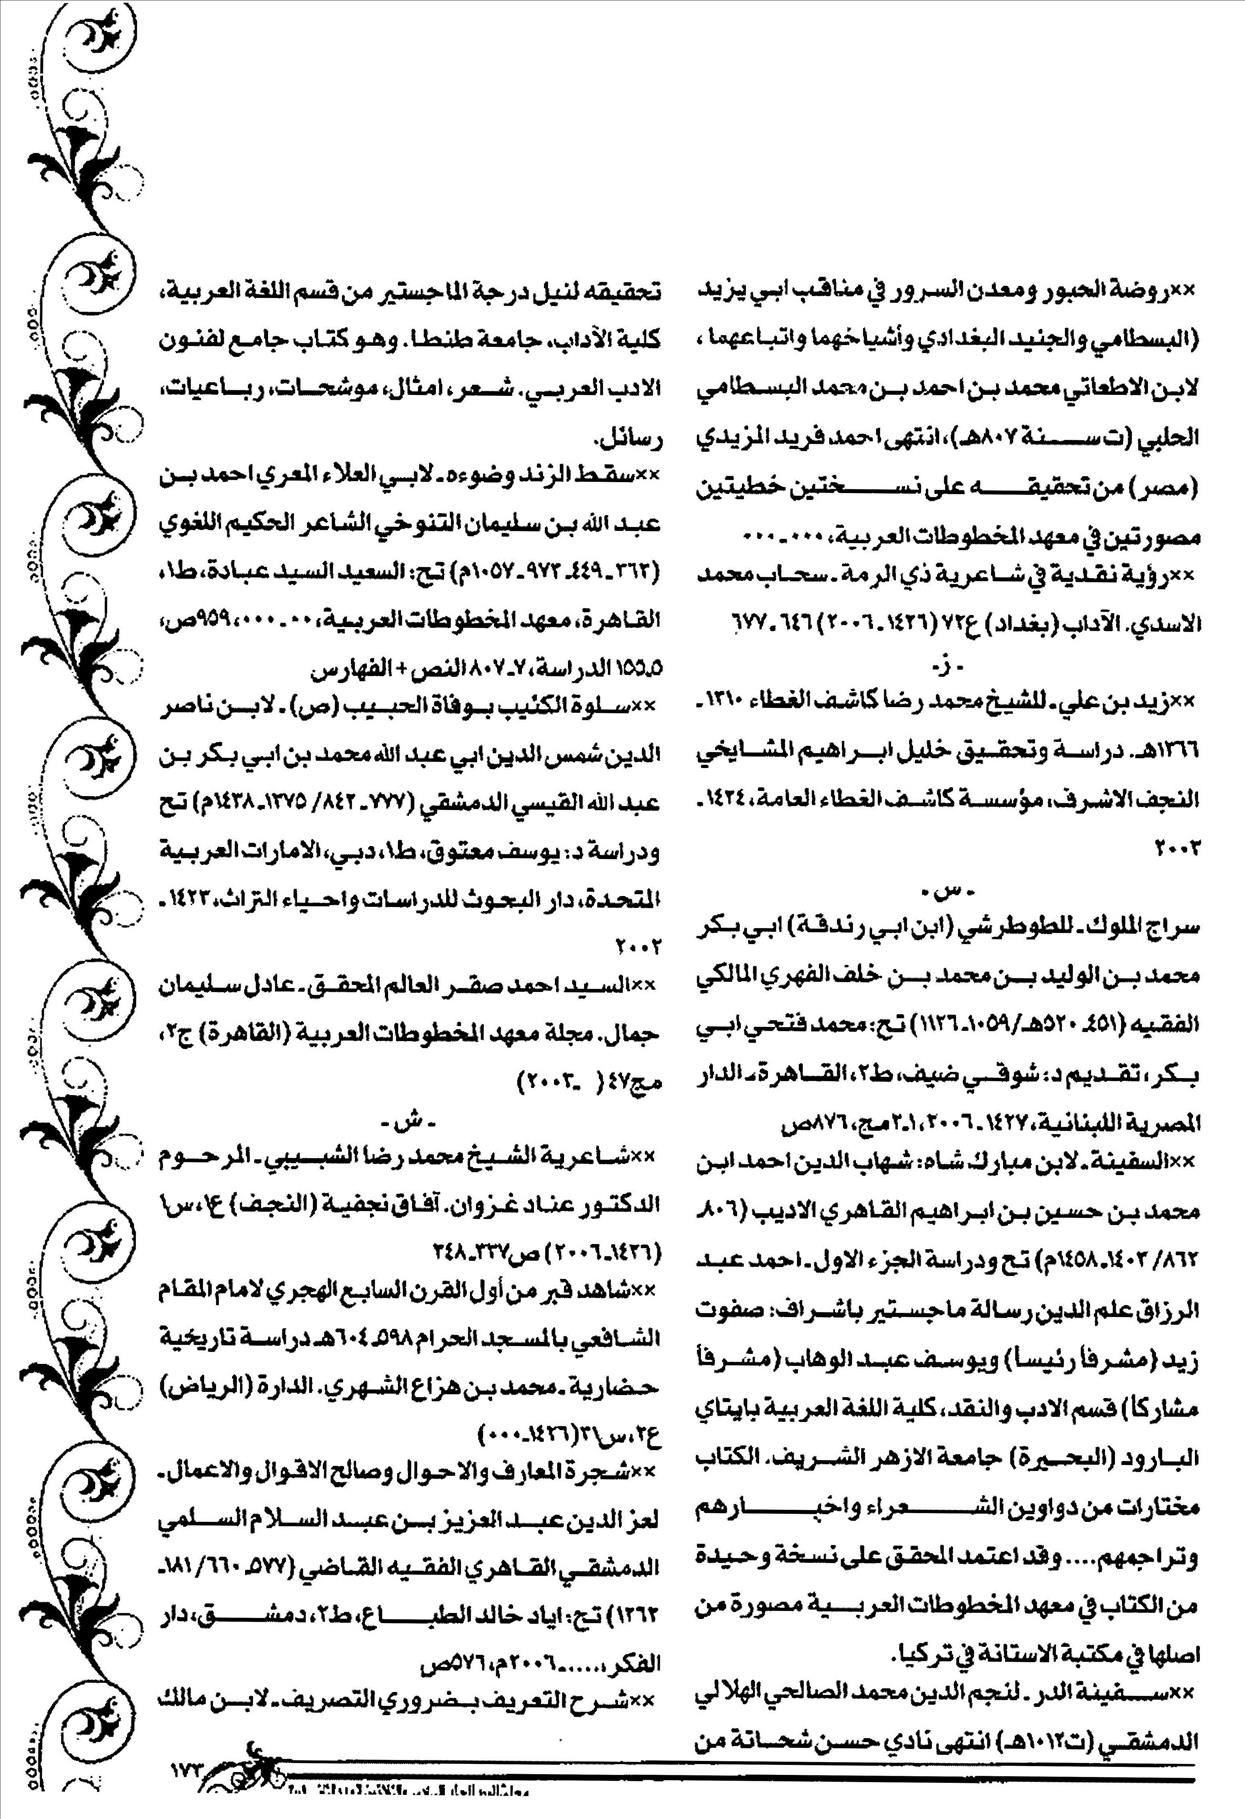 ××روضة الحبور ومعدن السرور في مناقب ابي يزيد
(البسطامي والجنيد البغدادي وأشياخهما واتباعهما،
لابن الاطعاتي محمد بن احمد بن محمد البسطامي
الحلبي (ت سنة ٨٠٧هـ)، انتهى احمد فريد المزيدي
(مصر) من تحقيقه على نسختين خطيتين
مصورتين في معهد المخطوطات العربية، ٠٠٠ـ٠٠٠
××رؤية نقدية في شاعرية ذي الرمة ـ سحاب محمد
الاسدي. الآداب (بغداد) ع٧٢ (١٤٢٦ـ٢٠٠٦) ٦٤٦ـ٦٧٧
ـ ز ـ
××زيد بن علي ـ للشيخ محمد رضا كاشف الغطاء ١٣١٠ـ
١٣٦٦هـ. دراسة وتحقيق خليل ابراهيم المشايخي
النجف الاشرف، مؤسسة كاشف الغطاء العامة، ١٤٢٤ـ
٢٠٠٣
ـ س ـ
سراج الملوك ـ للطوطرشي (ابن ابي رندقة) ابي بكر
محمد بن الوليد بن محمد بن خلف الفهري المالكي
الفقيه (٤٥١ـ٥٢٠هـ/١٠٥٩ـ١١٢٦) تح: محمد فتحي ابي
بكر، تقديم د: شوقي ضيف، ط٢، القاهرة ـ الدار
المصرية اللبنانية، ١٤٢٧ـ٢٠٠٦، ١ـ٢مج، ٨٧٦ص
××السفينة ـ لابن مبارك شاه: شهاب الدين احمد ابن
محمد بن حسين بن ابراهيم القاهري الاديب (٨٠٦ـ
٨٦٢/ ١٤٠٣ـ١٤٥٨م) تح ودراسة الجزء الاول ـ احمد عبد
الرزاق علم الدين رسالة ماجستير باشراف: صفوت
زيد (مشرفاً رئيسا) ويوسف عبد الوهاب (مشرفاً
مشاركاً) قسم الادب والنقد، كلية اللغة العربية بايتاي
البارود (البحيرة) جامعة الازهر الشريف. الكتاب
مختارات من دواوين الشعراء واخبارهم
وتراجمهم.... وقد اعتمد المحقق على نسخة وحيدة
من الكتاب في معهد المخطوطات العربية مصورة من
اصلها في مكتبة الاستانة في تركيا.
××سفينة الدر ـ لنجم الدين محمد الصالحي الهلالي
الدمشقي (ت١٠١٢هـ) انتهى نادي حسن شحاتة من
تحقيقه لنيل درجة الماجستير من قسم اللغة العربية،
كلية الآداب، جامعة طنطا. وهو كتاب جامع لفنون
الادب العربي. شعر، امثال، موشحات، رباعيات،
رسائل.
××سقط الزند وضوءه ـ لابي العلاء المعري احمد بن
عبد الله بن سليمان التنوخي الشاعر الحكيم اللغوي
(٣٦٣ـ٤٤٩ـ٩٧٣ـ١٠٥٧م) تح: السعيد السيد عبادة، ط١،
القاهرة، معهد المخطوطات العربية، ٠٠ـ٠٠٠، ٩٥٩ص،
٥ـ١٥٥ الدراسة، ٧ـ٨٠٧ النص + الفهارس
××سلوة الكئيب بوفاة الحبيب (ص) ـ لابن ناصر
الدين شمس الدين ابي عبد الله محمد بن ابي بكر بن
عبد الله القيسي الدمشقي (٧٧٧ـ٨٤٢/ ١٣٧٥ـ١٤٣٨م) تح
ودراسة د: يوسف معتوق، ط١، دبي، الامارات العربية
المتحدة، دار البحوث للدراسات واحياء التراث، ١٤٢٣ـ
٢٠٠٢
××السيد احمد صقر العالم المحقق ـ عادل سليمان
جمال. مجلة معهد المخطوطات العربية (القاهرة) ج٢،
مج٤٧ ( ـ٢٠٠٣)
ـ ش ـ
××شاعرية الشيخ محمد رضا الشبيبي ـ المرحوم
الدكتور عناد غزوان. آفاق نجفية (النجف) ع١، س١
(١٤٢٦ـ٢٠٠٦) ص٣٣٧ـ٣٤٨
××شاهد قبر من أول القرن السابع الهجري لامام المقام
الشافعي بالمسجد الحرام ٥٩٨ـ٦٠٤هـ دراسة تاريخية
حضارية ـ محمد بن هزاع الشهري. الدارة (الرياض)
ع٢، س٣١ (١٤٢٦ـ٠٠٠)
××شجرة المعارف والاحوال وصالح الاقوال والاعمال ـ
لعز الدين عبد العزيز بن عبد السلام السلمي
الدمشقي القاهري الفقيه القاضي (٥٧٧ـ٦٦٠/ ١٨١ـ
١٢٦٢) تح: اياد خالد الطباع، ط٢، دمشق، دار
الفكر، .....ـ٢٠٠٦م، ٥٧٦ص
××شرح التعريف بضروري التصريف ـ لابن مالك
١٧٣